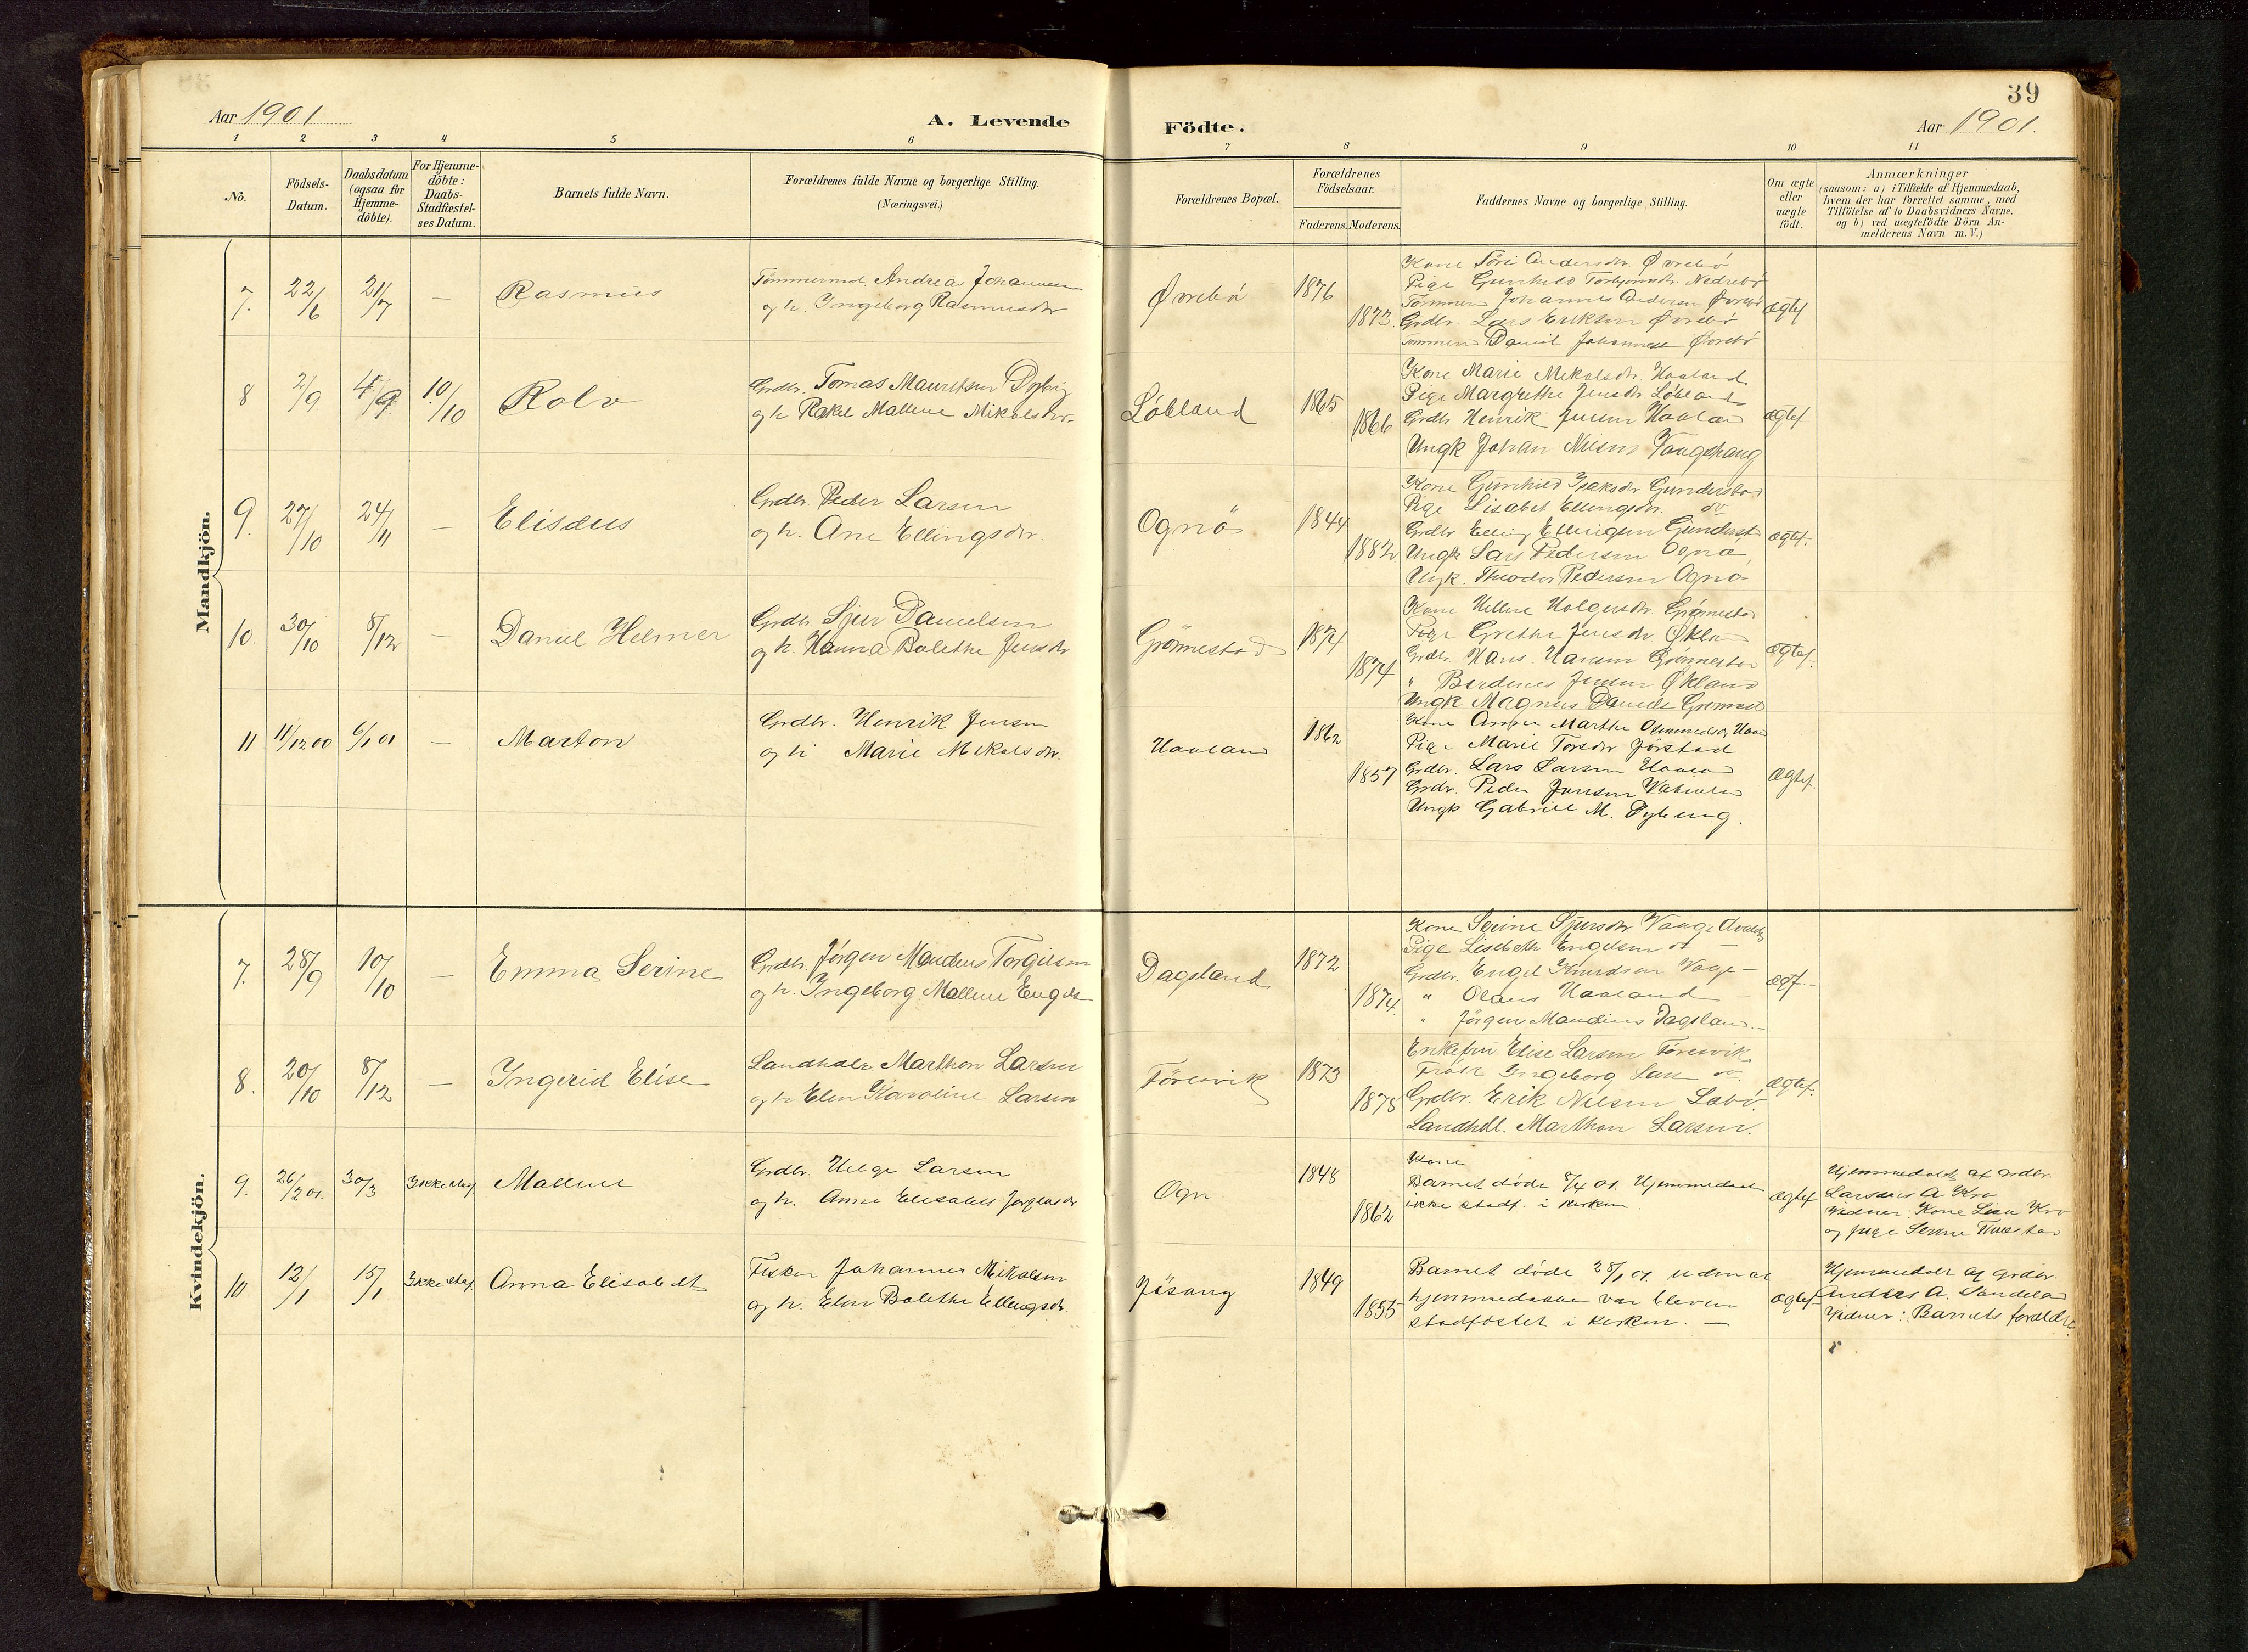 39
Aar 1901
A. Levende Födte.
Aar 1901.
1 2 3 4 5 6 7 8 9 10 11
No.
Födsels-Datum.
Daabsdatum (ogsaa for Hjemme-döbte).
For Hjemme-döbte: Daabs-Stadfæstel-ses Datum.
Barnets fulde Navn.
Forældrenes fulde Navne og borgerlige Stilling.
(Næringsvei.)
Forældrenes Bopæl.
Forældrenes Födselsaar.
Faderens. Moderens.
Faddernes Navne og borgerlige Stilling.
Om ægte eller uægte födt.
Anmærkninger
(saasom: a) i Tilfælde af Hjemmedaab,
hvem der har forrettet samme, med
Tilföielse af to Daabsvidners Navne.
og b) ved uægtefödte Börn An-
melderens Navn m. V.)
Mandkjön.
7. 22/6 21/7 — Rasmus
Tømmermd. Andreas Johannesen
og h. Ingeborg Rasmusdtr
Øvrebø 1876 1873.
Kone Siri Andersdtr. Øvrebø
Pige Gunhild Torbjørnsdr. Nedrebø
Tømmerm Johannes Andersen Øvrebø
Grdbr. Lars Eriksen Øvrebø
Tømmerm Daniel Johannesen Øvrebø
ægtef
8 2/9 4/9 10/10 Rolv
Grdbr. Tomas Mauritsen Dybing
og h Rakel Malene Mikalsdtr.
Løbland 1865 1866
Kone Marie Mikalsdtr. Haaland
Pige Margrethe Jensdtr Løbland
Grdbr Henrik Jensen Haaland
Ungk Johan Nilsen
ægtef
9. 27/10 24/11 — Elisæus
Grdbr. Peder Larsen
og h. Ane Ellingsdtr.
Ognö 1844 1882
Kone Gunhild Isaksdr. Gunderstad
Pige Lisabet Ellingsdtr. do
Grdbr Elling Ellingsen Gunderst
Ungk Lars Pedersen Ognö
Ungk. Theodor Pedersen Ognö
ægtef.
10. 30/10 8/12 — Daniel Helmer
Grdbr Sjur Danielsen
og h. Hanna Bolethe Jensdtr
Grønnestad 1874 1874
Kone Helene Holgersdtr. Grønnestad
Pige Grethe Jensdtr Økland
Grdbr. Hans Hansen Grønnestad
" Berdines Jensen Økland
Ungk Magnus Daniels Grønnest
ægtef.
11 11/12 00 6/1 01 — Marton
Grdbr. Henrik Jensen
og h Marie Mikalsdtr.
Haaland 1862 1857
Kone Anne Marthe
Pige Marie Torsdtr Jørstad
Grdbr. Lars Larsen Haaland
Grdbr. Peder Jensen
Ungk Gabriel M. Dybing.
ægtef.
Kvindekjön.
7. 28/9 10/10 — Emma Serine
Grdbr. Jörgen Maudius Torgilsen
og h. Ingeborg Malene Engels
Dagsland 1872 1874.
Kone Serine Sjursdtr Vaage
Pige Lisebeth Engelsen do —
Grdbr. Engel Knudsen Vaage —
" Olaus Haaland —
" Jörgen Maudius Dagsland. —
ægt. —
8. 20/10 8/12 — Ingerid Elise
Landhdlr. Marthon Larsen
og h Elen Karoline Larsen
Föresvik 1873 1878
Enkefru Elise Larsen Føresvik
Frøk Ingeborg Lars do.
Grdbr. Erik Nilsen
Landhdl. Marthon Larsen.
ægtef.
9. 26/2 01. 30/3 Ikke stadf. Mallene
Grdbr. Helge Larsen
og h. Anne Elisabet Jørgensdtr
Ogn 1848 1862
Kone
Barnet døde 8/4 01. Hjemmedaab
ikke stadf. i kirken.
ægtef
Hjemmedøbt af Grdbr.
A Kro
Vidner: Kone Lisa Kro
og pige Serine
10 12/1 15/1 Ikke stadf. Anna Elisabet
Fisker Johannes Mikalsen
og h. Elen Bolethe Ellingsdr.
Jösang 1849 1855
Barnet døde 28/1 01. uden at
hjemmedaaben var bleven
stadfæstet i kirken. —
ægtef
Hjemmedøbt af grdbr.
Andreas A. Sandeland
Vidner: Barnets forældre.